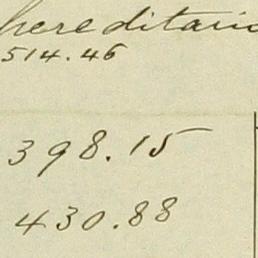 hereditario
514.46
398.15
430.88